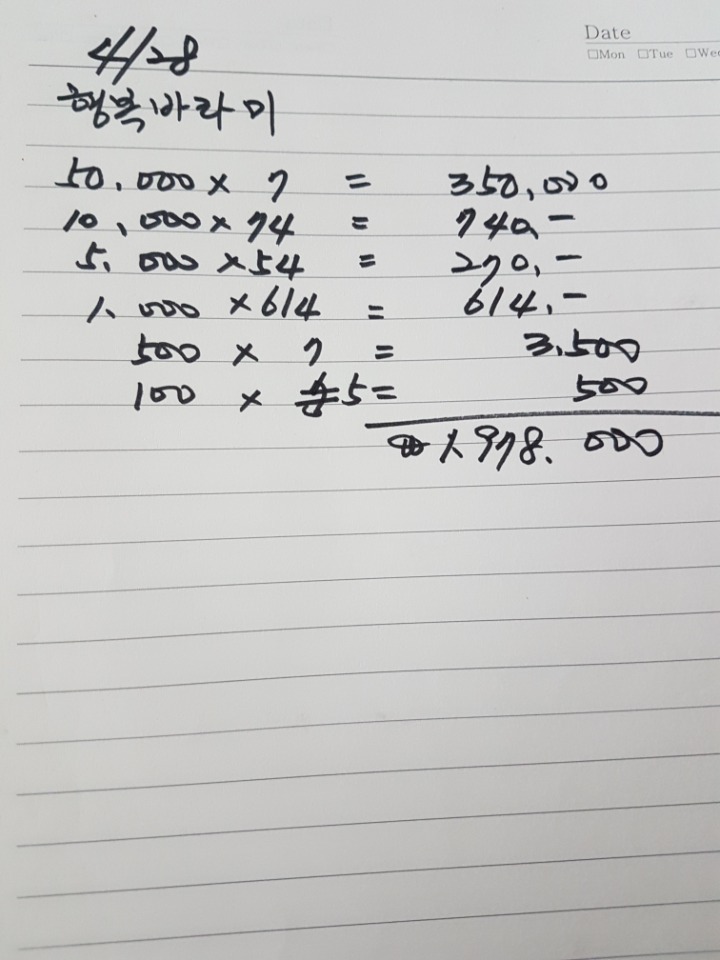 Date
□Mon □Tue □Wed
4/28
행복바라미
50,000 × 7 = 350,000
10,000 × 74 = 740,-
5.000 × 54 = 270,-
1.000 × 614 = 614.-
500 × 7 = 3.500
100 × 5 = 500
1.978.000